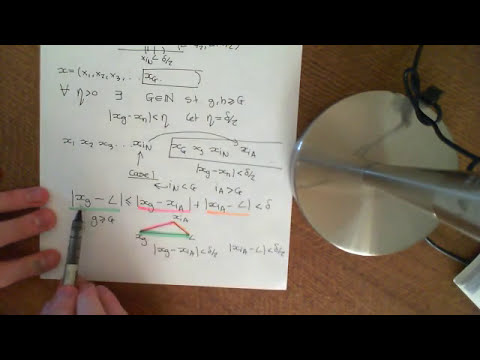 x_{iN} L δ/2
x = (x₁, x₂, x₃, ... x_G
∀ η>0 ∃ G∈ℕ st g,h≥G
|x_g - x_h| < η Let η = δ/2
x₁ x₂ x₃ ... x_{iN} x_G x_g x_{iN} x_{iA}
|x_g - x_h| < δ/2
Case 1
i_N < G i_A > G
|x_g - L| ≤ |x_g - x_{iA}| + |x_{iA} - L| < δ
g ≥ G
x_{iA}
x_g L
|x_g - x_{iA}| < δ/2 |x_{iA} - L| < δ/2